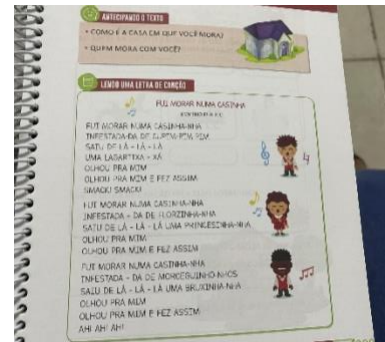 ANTECIPANDO O TEXTO
• COMO É A CASA EM QUE VOCÊ MORA?
• QUEM MORA COM VOCÊ?
LENDO UMA LETRA DE CANÇÃO
FUI MORAR NUMA CASINHA
FUI MORAR NUMA CASINHA-NHA
INFESTADA-DA DE CUPIM-PIM-PIM
SAIU DE LÁ - LÁ - LÁ
UMA LAGARTIXA - XÁ
OLHOU PRA MIM
OLHOU PRA MIM E FEZ ASSIM
SMACK! SMACK!
FUI MORAR NUMA CASINHA-NHA
INFESTADA - DA DE FLORZINHA-NHA
SAIU DE LÁ - LÁ - LÁ UMA PRINCESINHA-NHA
OLHOU PRA MIM
OLHOU PRA MIM E FEZ ASSIM
FUI MORAR NUMA CASINHA-NHA
INFESTADA - DA DE MORCEGUINHO-NHOS
SAIU DE LÁ - LÁ - LÁ UMA BRUXINHA-NHA
OLHOU PRA MIM
OLHOU PRA MIM E FEZ ASSIM
AH! AH! AH!